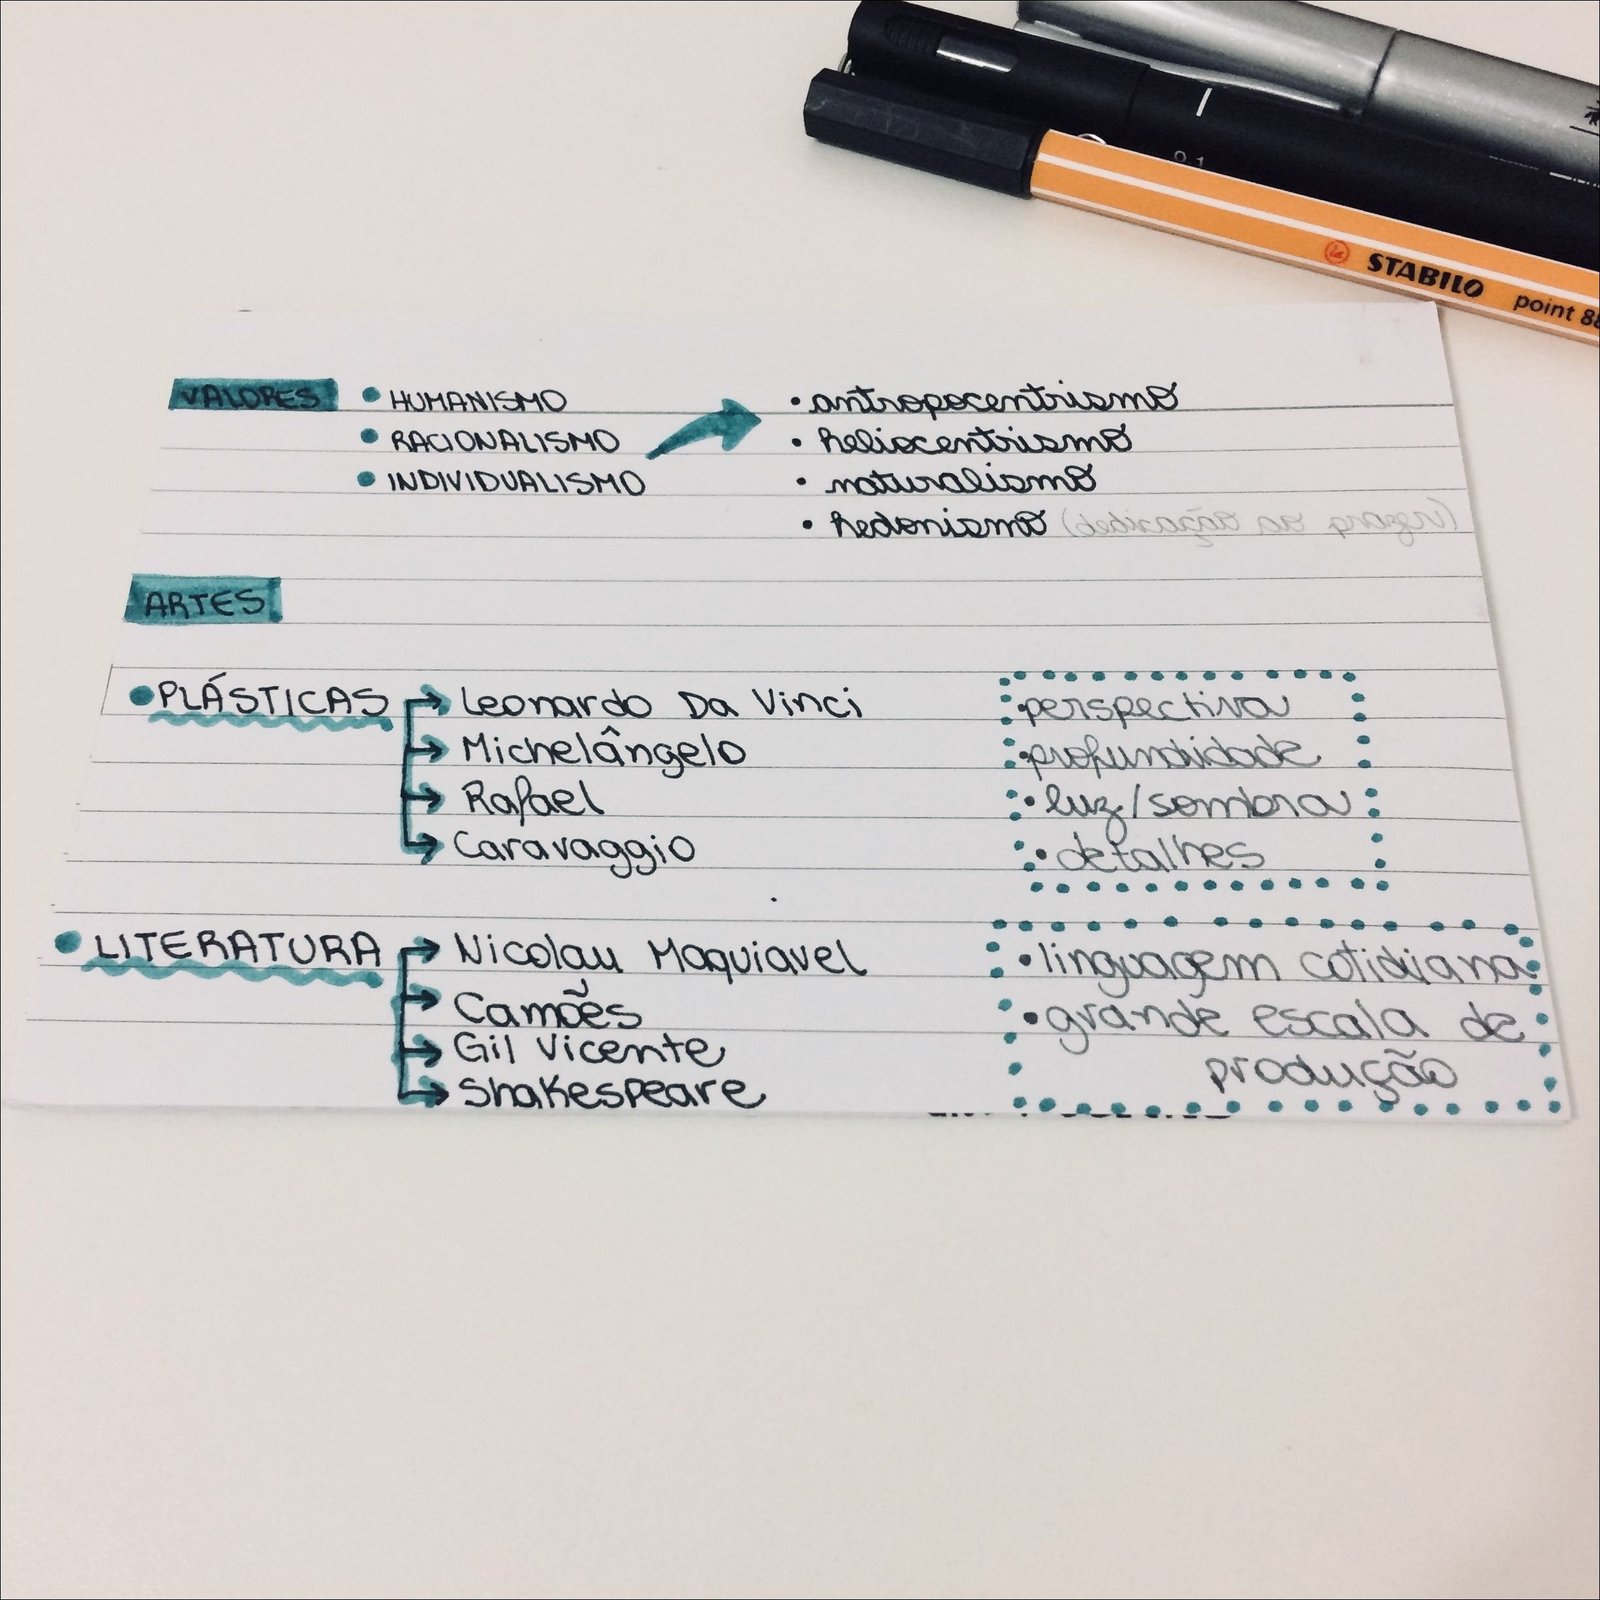 0.1
STABILO point 88
VALORES • HUMANISMO • antropocentrismo
• RACIONALISMO • heliocentrismo
• INDIVIDUALISMO • naturalismo
• hedonismo (dedicação ao prazer)
ARTES
• PLÁSTICAS → Leonardo Da Vinci • perspectiva
→ Michelângelo • profundidade
→ Rafael • luz/sombra
→ Caravaggio • detalhes
• LITERATURA → Nicolau Maquiavel • linguagem cotidiana
→ Camões • grande escala de
→ Gil Vicente produção
→ Shakespeare